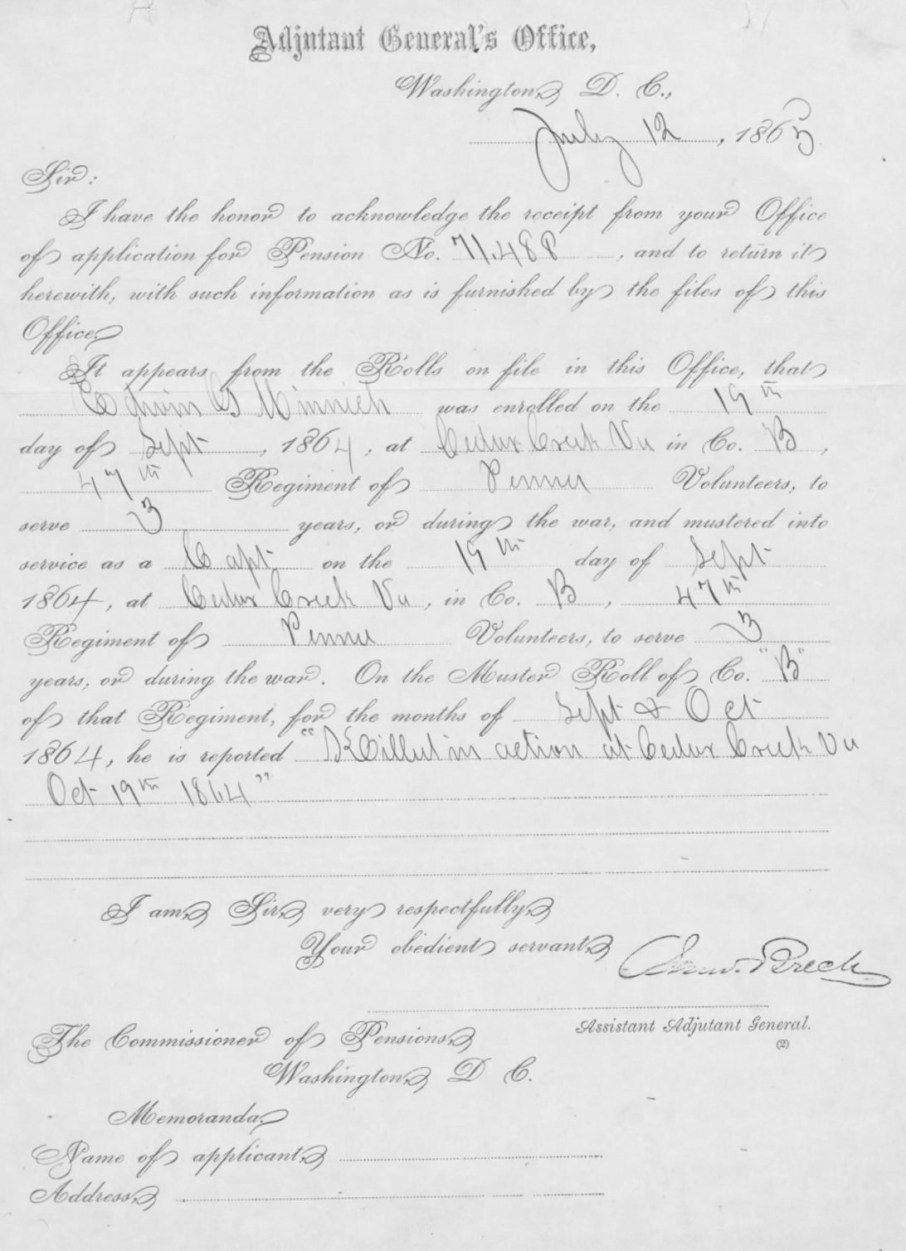 Adjutant General's Office,
Washington, D. C.,
July 12, 1865
Sir:
I have the honor to acknowledge the receipt from your Office
of application for Pension No. 71.488, and to return it
herewith, with such information as is furnished by the files of this
Office.
It appears from the Rolls on file in this Office, that
Edwin G Minnich was enrolled on the 19th
day of Sept, 1864, at Cedar Creek Va in Co. B,
47th Regiment of Penna Volunteers, to
serve 3 years, or during the war, and mustered into
service as a Capt on the 19th day of Sept
1864, at Cedar Creek Va, in Co. B, 47th
Regiment of Penna Volunteers, to serve 3
years, or during the war. On the Muster Roll of Co. "B"
of that Regiment, for the months of Sept & Oct
1864, he is reported "Killed in action at Cedar Creek Va
Oct 19th 1864"
I am, Sir, very respectfully,
Your obedient servant,
Saml. Breck
Assistant Adjutant General.
(2)
The Commissioner of Pensions,
Washington, D C.
Memoranda,
Name of applicant,
Address,